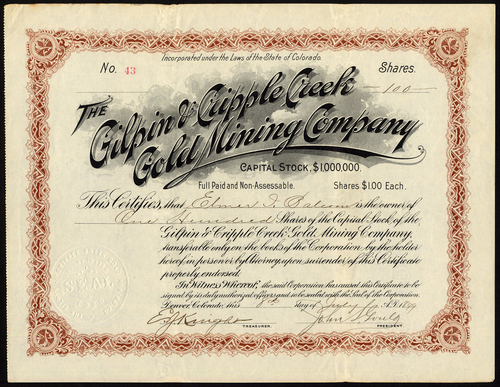 Incorporated under the Laws of the State of Colorado.
No. 43 Shares.
100
The Gilpin & Cripple Creek
Gold Mining Company
Capital Stock, $1,000,000.
Full Paid and Non-Assessable. Shares $1.00 Each.
This Certifies, that Elmer F. is the owner of
One Hundred Shares of the Capital Stock of the
Gilpin & Cripple Creek Gold Mining Company,
transferable only on the books of the Corporation by the holder
hereof, in person or by Attorney, upon surrender of this Certificate
properly endorsed.
In Witness Whereof, the said Corporation has caused this Certificate to be
signed by its duly authorized officers and to be sealed with the Seal of the Corporation.
Denver, Colorado, this day of A.D. 1899
John Gould
TREASURER. PRESIDENT.
SEAL